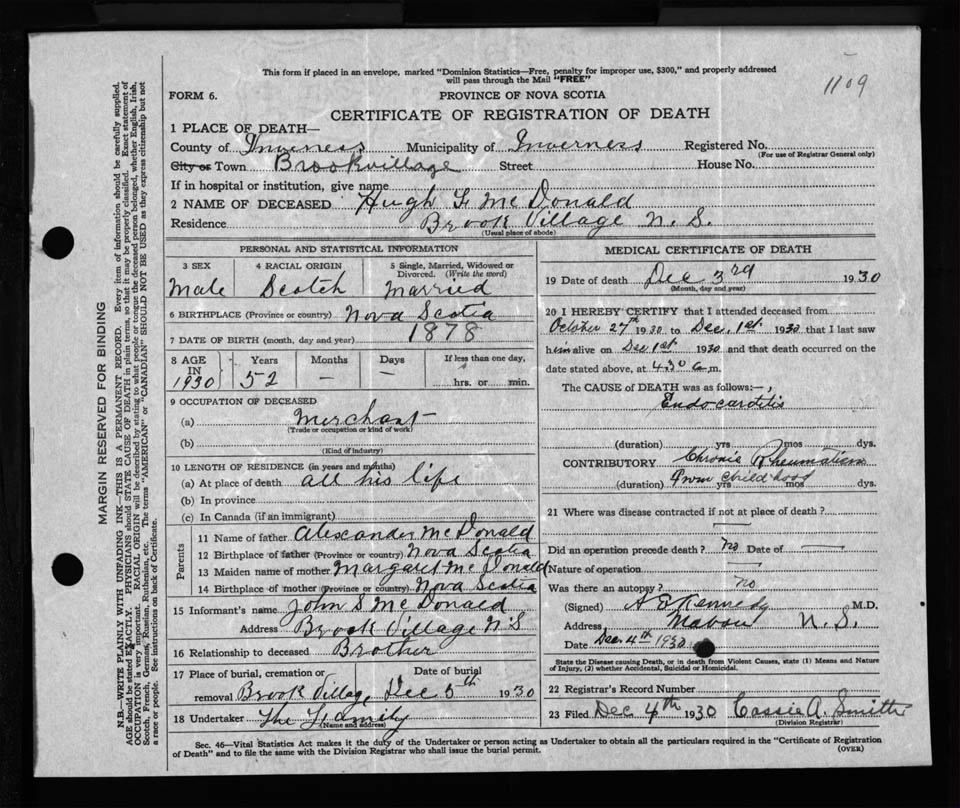 This form if placed in an envelope, marked "Dominion Statistics—Free, penalty for improper use, $300," and properly addressed
will pass through the Mail "FREE"
1109
FORM 6.
PROVINCE OF NOVA SCOTIA
CERTIFICATE OF REGISTRATION OF DEATH
1 PLACE OF DEATH—
County of Inverness Municipality of Inverness Registered No.
(For use of Registrar General only)
City or Town Brookvillage Street House No.
If in hospital or institution, give name
2 NAME OF DECEASED Hugh F McDonald
Residence Brook Village N.S.
(Usual place of abode)
PERSONAL AND STATISTICAL INFORMATION
3 SEX 4 RACIAL ORIGIN 5 Single, Married, Widowed or
Divorced. (Write the word)
Male Scotch Married
6 BIRTHPLACE (Province or country) Nova Scotia
7 DATE OF BIRTH (month, day and year) 1878
8 AGE Years Months Days If less than one day,
IN
1930 52 — — hrs. or min.
9 OCCUPATION OF DECEASED
(a) Merchant
(Trade or occupation or kind of work)
(b)
(Kind of industry)
10 LENGTH OF RESIDENCE (in years and months)
(a) At place of death all his life
(b) In province
(c) In Canada (if an immigrant)
Parents
11 Name of father Alexander McDonald
12 Birthplace of father (Province or country) Nova Scotia
13 Maiden name of mother Margaret McDonald
14 Birthplace of mother (Province or country) Nova Scotia
15 Informant's name John S McDonald
Address Brook Village N.S
16 Relationship to deceased Brother
17 Place of burial, cremation or Date of burial
removal Brook Village Dec 5th 1930
18 Undertaker The Family
(Name and address)
MEDICAL CERTIFICATE OF DEATH
19 Date of death Dec 3rd 1930
(Month, day and year)
20 I HEREBY CERTIFY that I attended deceased from
October 27th 1930 to Dec. 1st 1930 that I last saw
him alive on Dec 1st 1930 and that death occurred on the
date stated above, at 4.30 a.m.
The CAUSE of DEATH was as follows:—
Endocarditis
(duration) yrs mos dys.
CONTRIBUTORY Chronic Rheumatism
(duration) From childhood yrs mos dys.
21 Where was disease contracted if not at place of death?
—
Did an operation precede death? no Date of —
Nature of operation —
Was there an autopsy? no
(Signed) Kennedy M.D.
Address Mabou N.S.
Date Dec. 4th 1930
State the Disease causing Death, or in death from Violent Causes, state (1) Means and Nature
of Injury, (2) whether Accidental, Suicidal or Homicidal.
22 Registrar's Record Number
23 Filed Dec 4th 1930 Cassie A. Smith
(Division Registrar)
Sec. 46—Vital Statistics Act makes it the duty of the Undertaker or person acting as Undertaker to obtain all the particulars required in the "Certificate of Registration
of Death" and to file the same with the Division Registrar who shall issue the burial permit. (OVER)
MARGIN RESERVED FOR BINDING
N.B.—WRITE PLAINLY WITH UNFADING INK—THIS IS A PERMANENT RECORD. Every item of information should be carefully supplied.
AGE should be stated EXACTLY. PHYSICIANS should STATE CAUSE OF DEATH in plain terms, so that it may be properly classified. Exact statement of
OCCUPATION is very important. RACIAL ORIGIN will be described by stating to what people or tongue the deceased person belonged, whether English, Irish,
Scotch, French, German, Russian, Ruthenian, etc. The terms "AMERICAN" or "CANADIAN" SHOULD NOT BE USED as they express citizenship but not
a race or people. See instructions on back of Certificate.